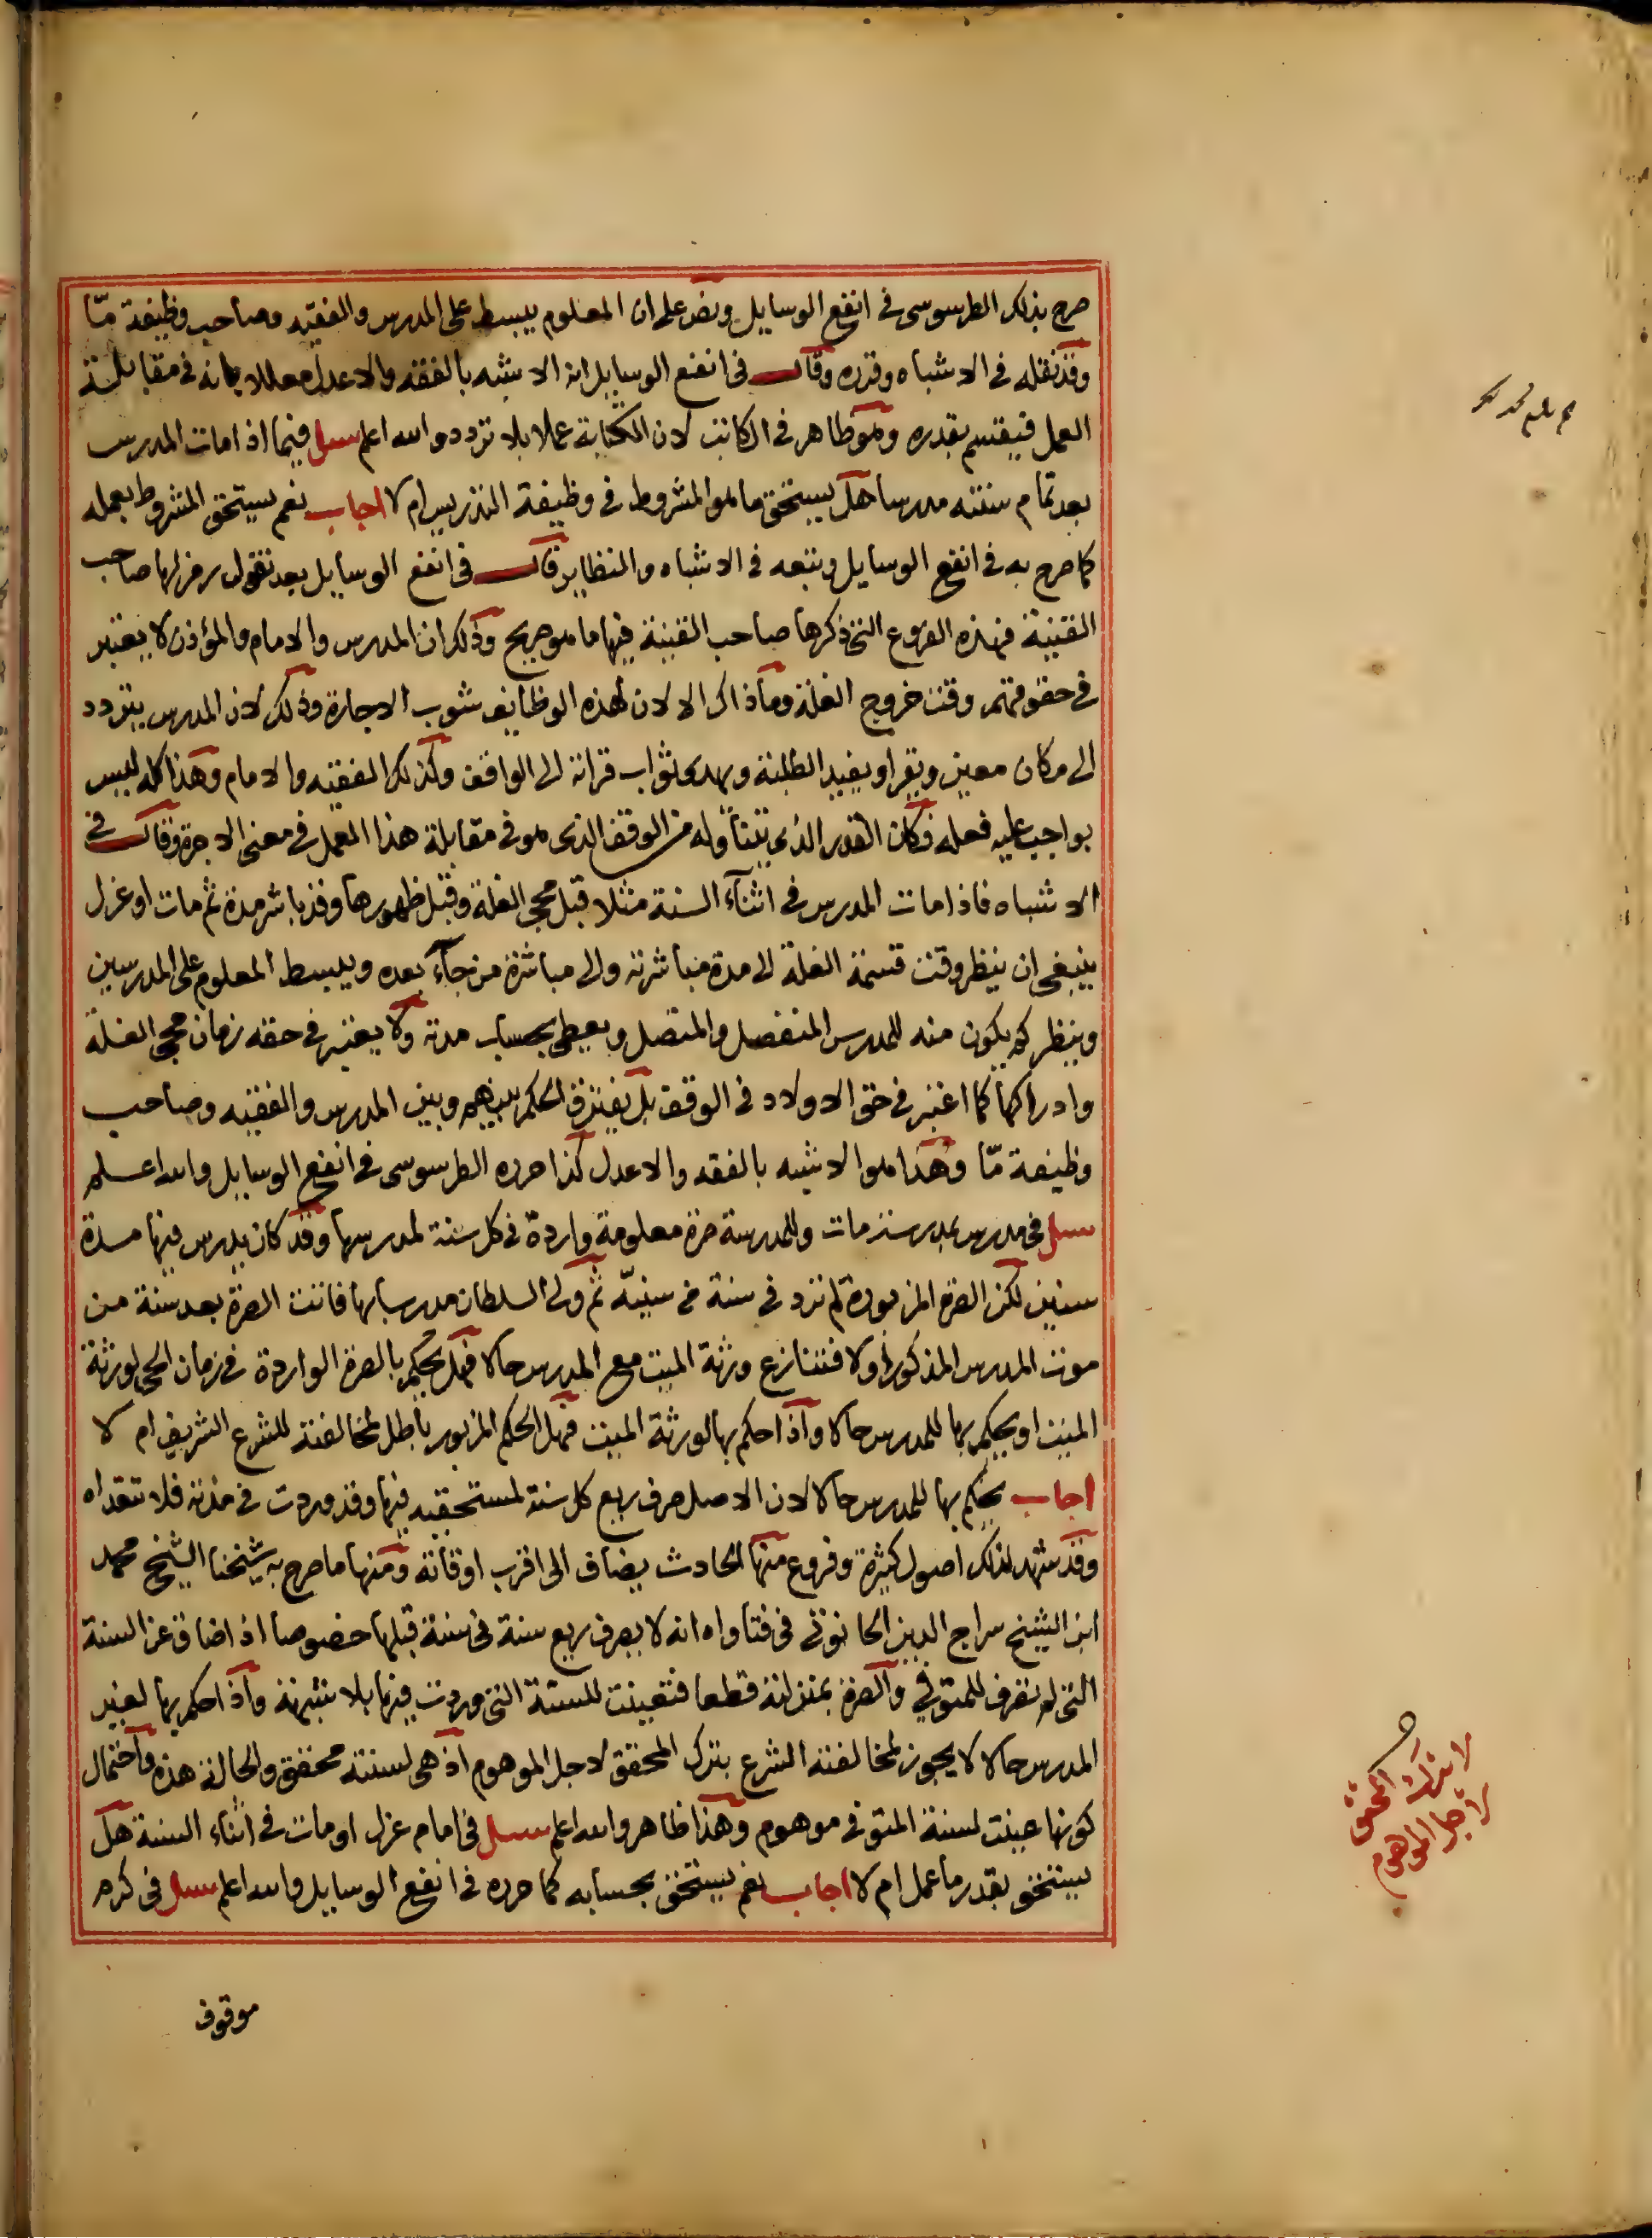 صرح بذلك الطرسوسى فى انفع الوسايل ونص على ان المعلوم يبسط على المدرس والفقيه وصاحب وظيفة مّا
وقد نقله فى الاشباه وقرره وقال فى انفع الوسايل انه الاشبه بالفقه والاعدل معللا بانه فى مقابلة
العمل فيقسم بقدره وهو ظاهر فى الكاتب لان الكتابة عملا بلا تردد والله اعلم سيل فيما اذا مات المدرس
بعد تمام سنته مدرسا هل يستحق ما هو المشروط فى وظيفة التدريس ام لا اجاب نعم يستحق المشروط بعمله
كما صرح به فى انفع الوسايل وتبعه فى الاشباه والنظاير قال فى انفع الوسايل بعد نقول رمز لها صاحب
القنية فهذه الفروع التى ذكرها صاحب القنية فيها ما هو صريح وذلك ان المدرس والامام والمؤذن لا يعتبر
فى حقوقهم وقت خروج الغلة وما ذاك الا لان لهذه الوظايف شوب الاجارة وذلك لان المدرس يتردد
الى مكان معين ويقرا ويفيد الطلبة ويهدى ثواب قرائة الى الواقف وكذلك الفقيه والامام وهذا كله ليس
بواجب عليه فعله فكان القدر الذى يتناوله من الوقف الذى هو فى مقابلة هذا العمل فى معنى الاجرة وقال فى
الاشباه فاذا مات المدرس فى اثنآء السنة مثلا قبل مجى الغلة وقبل ظهورها وقد باشر مدة ثم مات او عزل
ينبغى ان ينظر وقت قسمة الغلة الى مدة مباشرته والى مباشرة من جآء بعده ويبسط المعلوم على المدرسين
وينظر كم يكون منه للمدرس المنفصل والمتصل ويعطى بحساب مدته ولا يعتبر فى حقه زمان مجى الغلة
وادراكها كما اعتبر فى حق الاولاد فى الوقف بل يفترق الحكم بينهم وبين المدرس والفقيه وصاحب
وظيفة مّا وهذا هو الاشبه بالفقه والاعدل كذا حرره الطرسوسى فى انفع الوسايل والله اعلم
سيل فى مدرس بمدرسة مات وللمدرسة صرة معلومة واردة فى كل سنة لمدرسها وقد كان يدرس فيها مدة
سنين لكن الصرة المزبورة لم ترد فى سنة من سنيّه ثم ولى السلطان مدرسا بها فاتت الصرة بعد سنة من
موت المدرس المذكور اولا فتنازع ورثة الميت مع المدرس حالا فهل يحكم بالصرة الواردة فى زمان الحى لورثة
الميت او يحكم بها للمدرس حالا واذا حكم بها لورثة الميت فهل الحكم المزبور باطل لمخالفته للشرع الشريف ام لا
اجاب يحكم بها للمدرس حالا لان الاصل صرف ريع كل سنة لمستحقيه فيها وقد وردت فى مدته فلا تتعداه
وقد شهد لذلك اصول كثيرة وفروع منها الحادث يضاف الى اقرب اوقاته ومنها ما صرح به شيخنا الشيخ محمد
ابن الشيخ سراج الدين الحانوتى فى فتاواه انه لا يصرف ريع سنة فى سنة قبلها خصوصا اذا ضاق عن السنة
التى لم تصرف للمتوفى والصرة بمنزلته قطعا فتعينت للسنة التى وردت فيها بلا شبهة واذا حكم بها لغير
المدرس حالا لا يجوز لمخالفته الشرع بترك المحقق لاجل الموهوم اذ هى لسنته محقق والحالة هذه واحتمال
كونها عينت لسنة المتوفى موهوم وهذا ظاهر والله اعلم سيل فى امام عزل او مات فى اثناء السنة هل
يستحق بقدر ما عمل ام لا اجاب نعم يستحق بحسابه كما حرره فى انفع الوسايل والله اعلم سيل فى كرم
موقوف
لا يترك المحقق
لاجل الموهوم